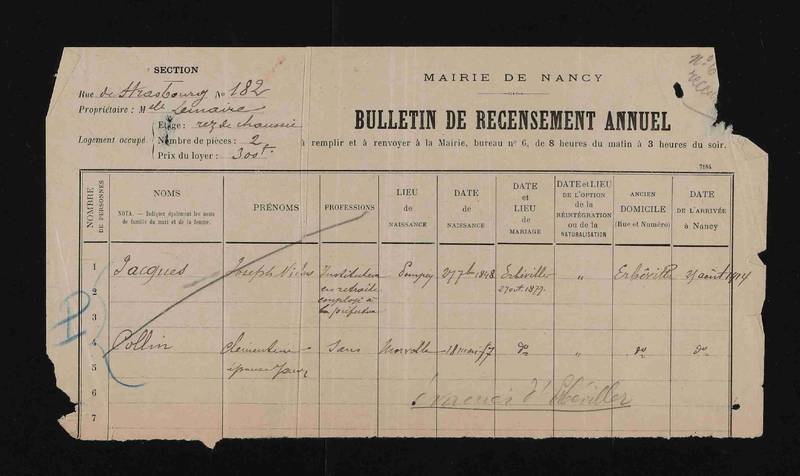 SECTION
Rue de Strasbourg No 182
Propriétaire : Melle Lemaire
Logement occupé
Etage : rez de chaussée
Nombre de pièces : 2
Prix du loyer : 30 st
MAIRIE DE NANCY
BULLETIN DE RECENSEMENT ANNUEL
à remplir et à renvoyer à la Mairie, bureau n° 6, de 8 heures du matin à 3 heures du soir.
7184
NOMBRE DE PERSONNES
NOMS
NOTA. — Indiquer également les noms de famille du mari et de la femme.
PRÉNOMS
PROFESSIONS
LIEU de NAISSANCE
DATE de NAISSANCE
DATE et LIEU de MARIAGE
DATE et LIEU DE L'OPTION de la RÉINTÉGRATION ou de la NATURALISATION
ANCIEN DOMICILE (Rue et Numéro)
DATE DE L'ARRIVÉE à Nancy
1 Jacques Joseph Instituteur Pompey 27 7bre 1848 Erbéviller " Erbéviller août 1914
2 en retraite 27 oct. 1879
3 employé à
la préfecture
4 Collin Clémentine Sans " do do
5 épouse
6 Evacués d'Erbéviller
7